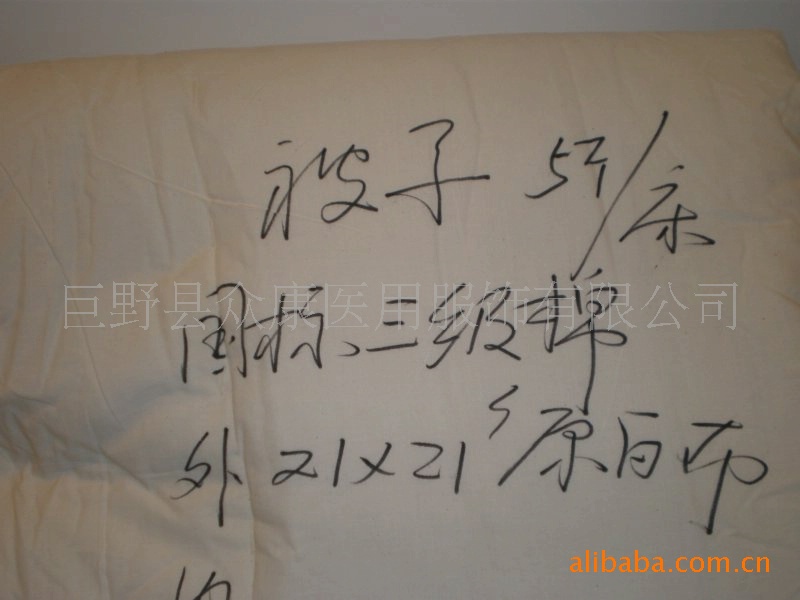 被子 5斤/床
巨野县众康医用服饰有限公司
国标、三级棉
外 21×21s 原白布
alibaba.com.cn